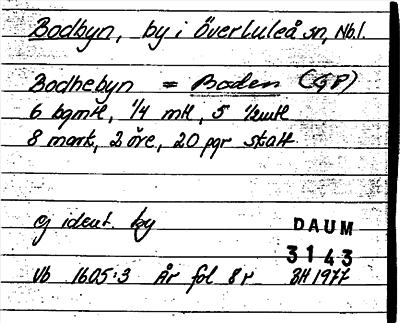 Bodbyn, by i Överluleå sn, Nb.l.
Bodhebyn = Boden (GP)
6 bgmk, 1/4 mk, 5 1/2mk
8 mark, 2 öre, 20 pgr skatt
ej ident. by
DAUM
3143
Vb 1605:3 År fol 8r BH 1977